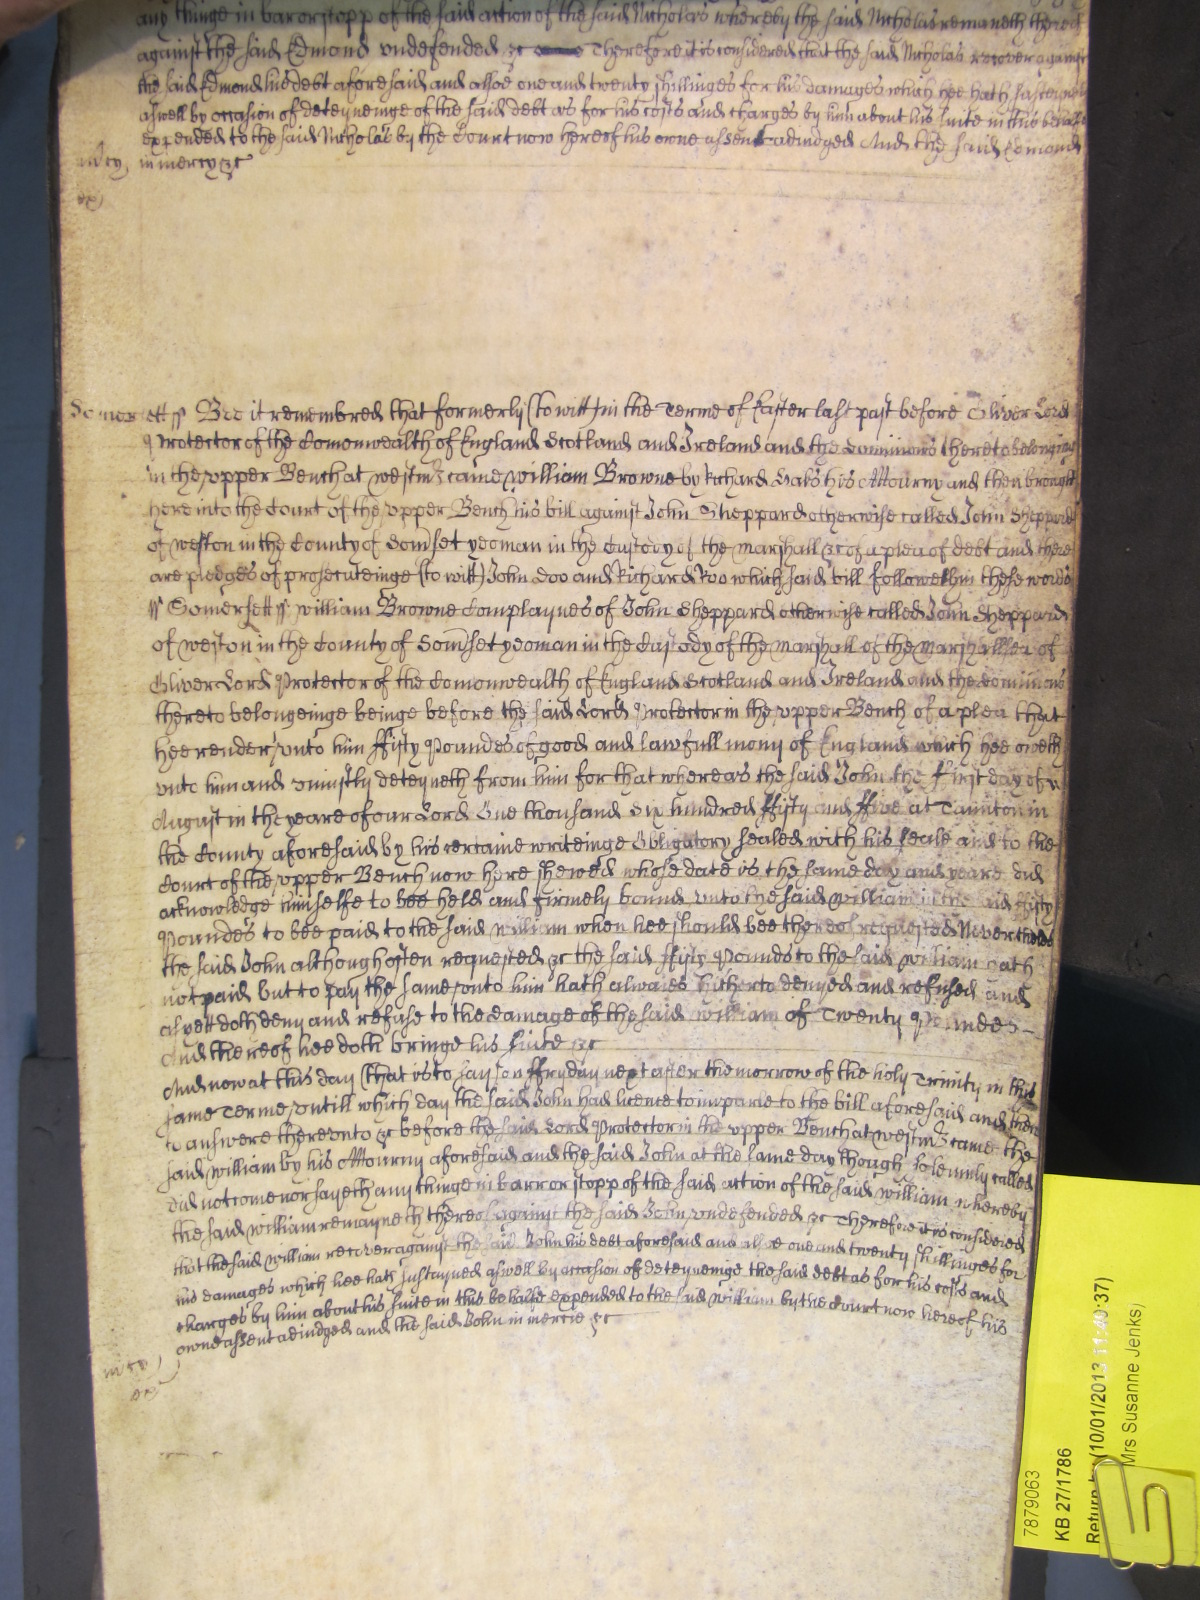 any thinge in bar or stopp of the said action of the said Nicholas whereby the said Nicholas remaneth thereof
against the said Edmond undefended &c Therefore it is considered that the said Nicholas recover against
the said Edmond his debt aforesaid and alsoe one and twenty shillinges for his damages which hee hath
aswell by occasion of deteyneinge of the said debt as for his costs and charges by him about his suite in this behalfe
expended to the said Nicholas by the Court now here of his owne assent adiudged And the said Edmond
in mercy &c
Somersett ss Bee it remembred that formerly (to witt) in the Terme of Easter last past before Oliver Lord
Protector of the Comonwealth of England Scotland and Ireland and the Dominions thereto belonging
in the upper Bench at Westmr came William Browne by Richard his Attourny and then brought
here into the Court of the upper Bench his bill against John Sheppard otherwise called John Sheppard
of Weston in the County of Somset yeoman in the Custody of the Marshall &c of a plea of debt and there
are pledges of prosecuteinge (to witt) John Doo and Richard Roo which said bill followeth in these words
ss Somersett ss William Browne Complaynes of John Sheppard otherwise called John Sheppard
of Weston in the County of Somset yeoman in the Custody of the Marshall of the Marshallsea of
Oliver Lord Protector of the Comonwealth of England Scotland and Ireland and the Dominions
thereto belongeinge beinge before the said Lord Protector in the upper Bench of a plea that
hee render unto him ffifty Poundes of good and lawfull mony of England which hee oweth
unto him and uniustly deteyneth from him for that whereas the said John the first day of
August in the yeare of our Lord One thousand six hundred ffifty and ffive at Taunton in
the County aforesaid by his certaine writeinge Obligatory sealed with his seale and to the
Court of the upper Bench now here shewed whose date is the same day and yeare did
acknowledge himselfe to bee held and firmely bound unto the said William in the said ffifty
Poundes to bee paid to the said William when hee should bee thereof requested Neverthelesse
the said John although often requested &c the said ffifty Pounds to the said William hath
not paid but to pay the same unto him hath alwaies hitherto denyed and refused and
as yett doth deny and refuse to the damage of the said William of Twenty Poundes
And thereof hee doth bringe his suite &c
And now at this day (that is to say) on ffryday next after the morrow of the holy Trinity in this
same Terme untill which day the said John had licence to imparle to the bill aforesaid and then
to answere thereunto &c before the said Lord Protector in the upper Bench at Westmr came the
said William by his Attourny aforesaid and the said John at the same day though solemnly called
did not come nor sayeth any thinge in barr or stopp of the said action of the said William whereby
the said William remayneth thereof against the said John undefended &c Therefore it is considered
that the said William recover against the said John his debt aforesaid and alsoe one and twenty shillinges for
his damages which hee hath sustayned aswell by occasion of deteyneinge the said debt as for his costs and
charges by him about his suite in this behalfe expended to the said William by the Court now here of his
owne assent adiudged and the said John in mercie &c
7879063
KB 27/1786
Return by (10/01/2013 11:40:37)
Mrs Susanne Jenks)